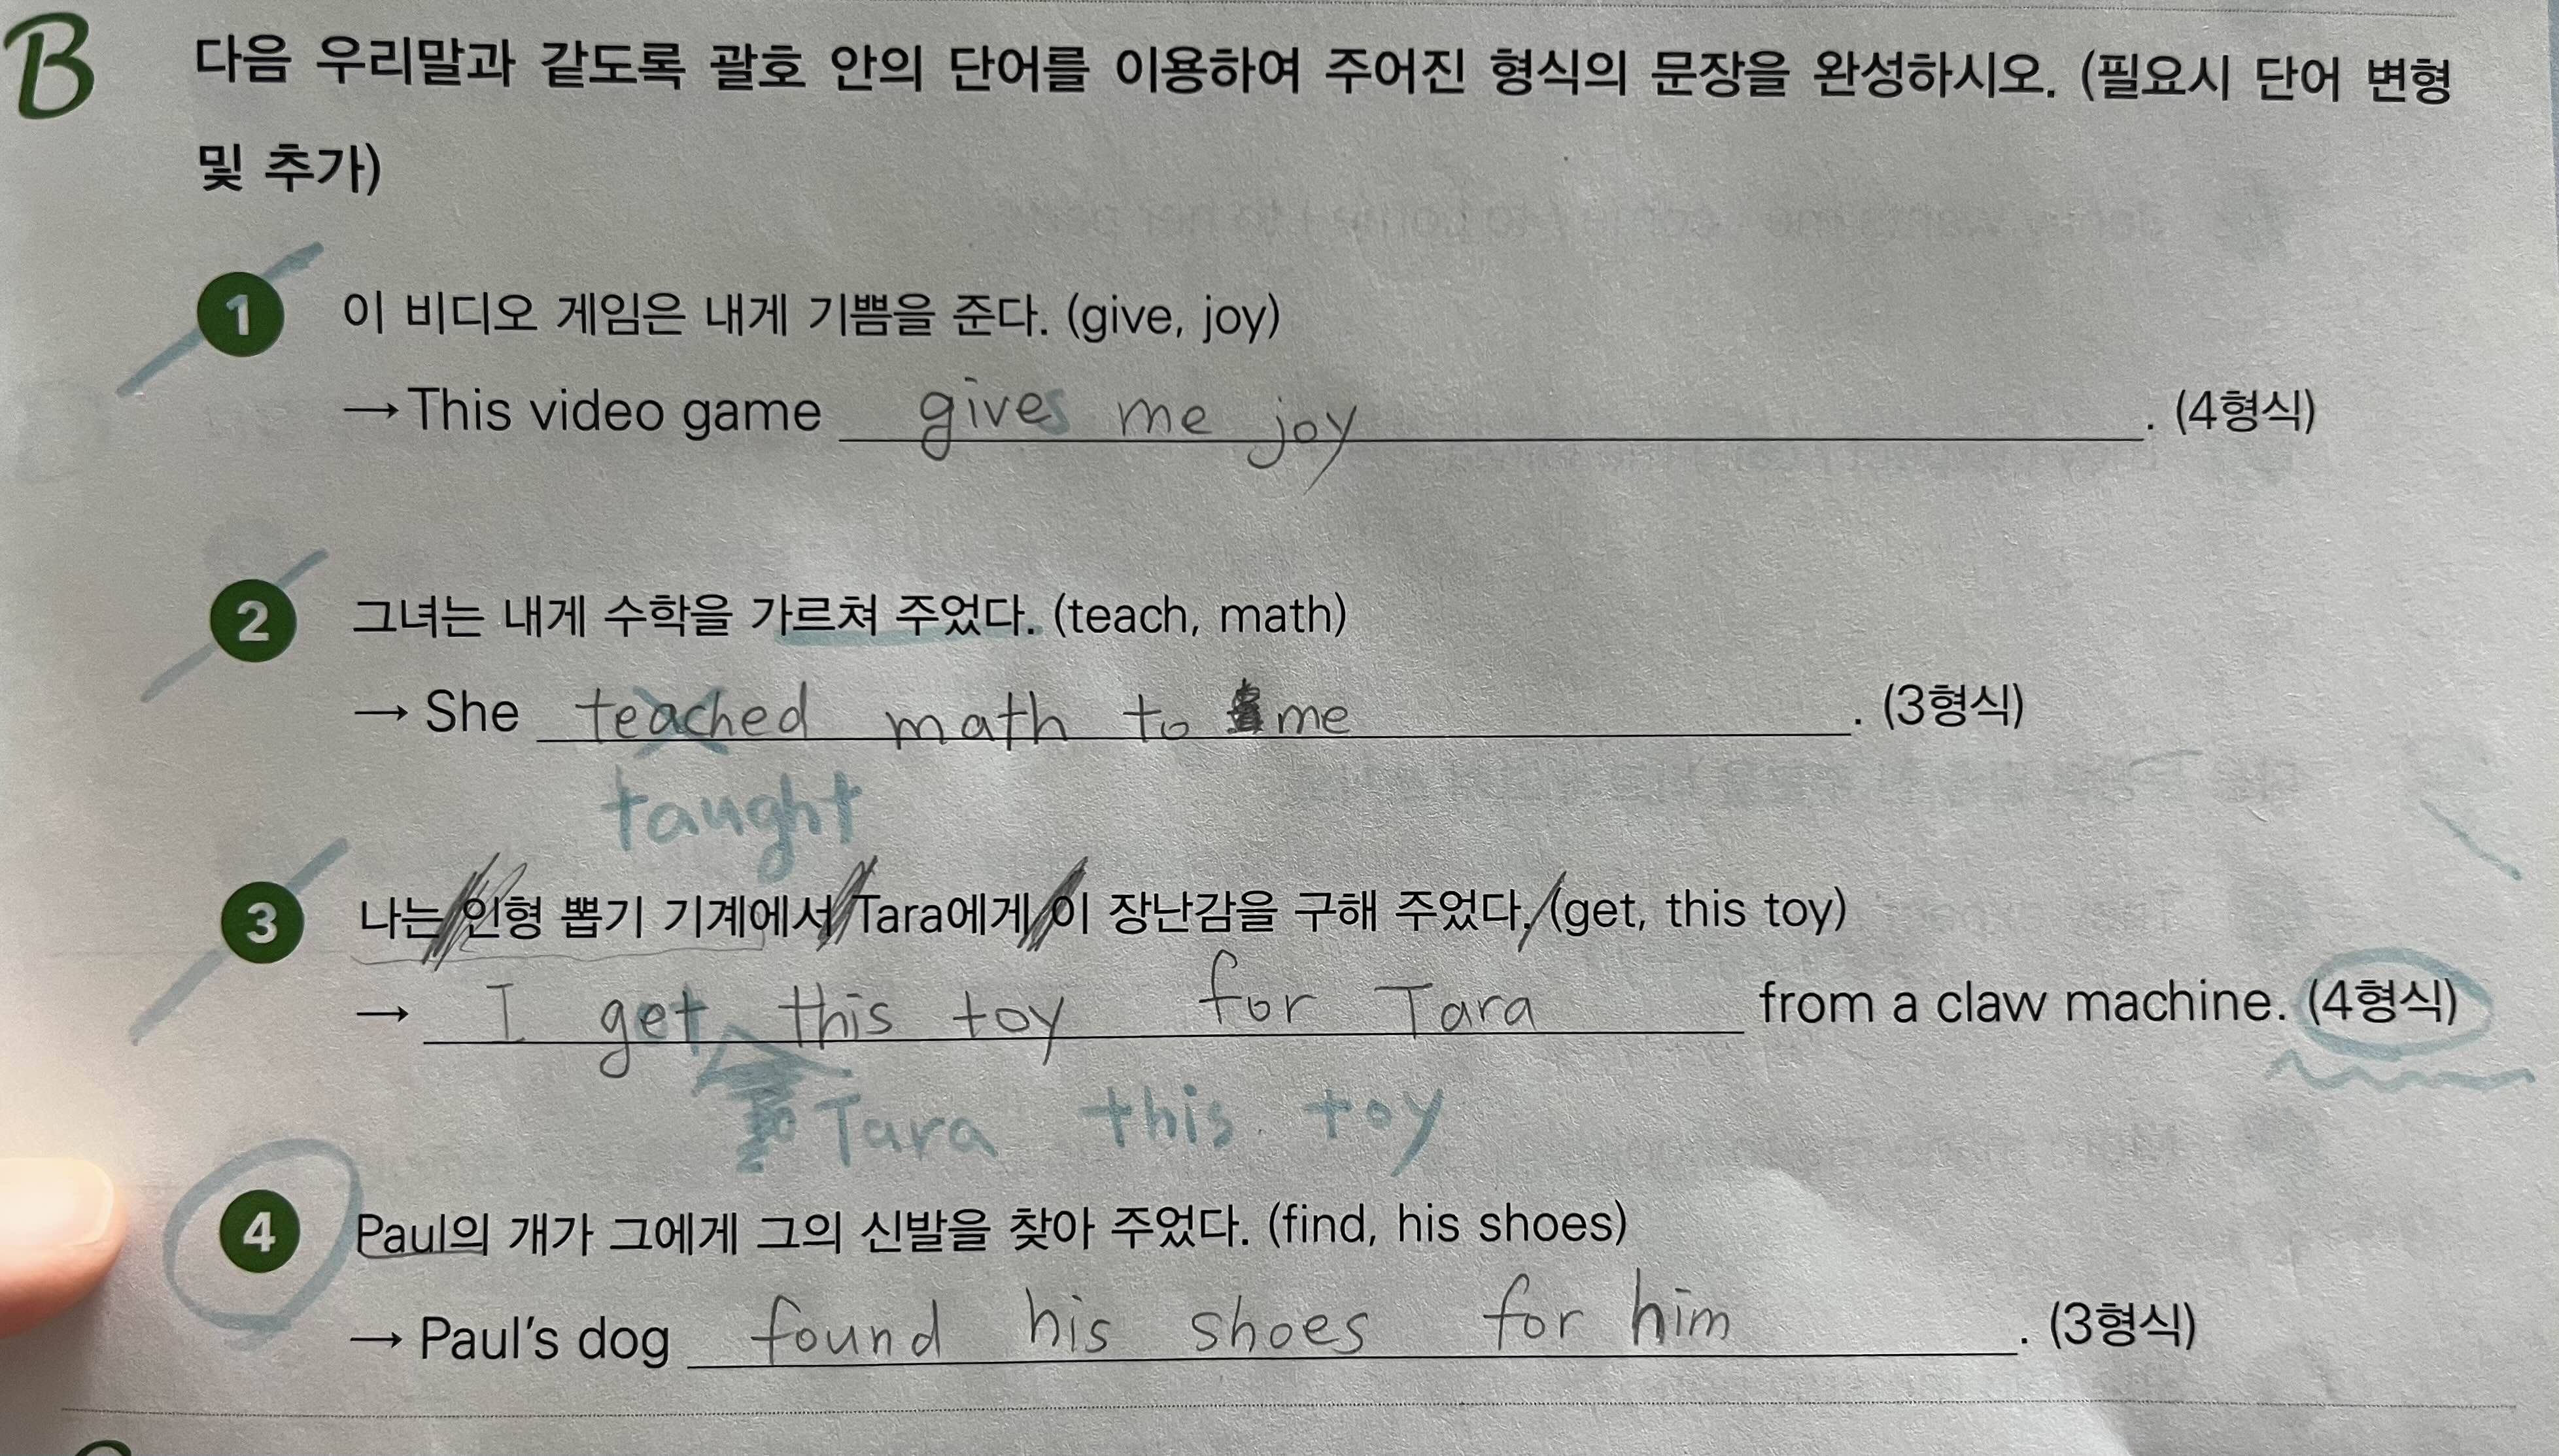 B 다음 우리말과 같도록 괄호 안의 단어를 이용하여 주어진 형식의 문장을 완성하시오. (필요시 단어 변형
및 추가)
1 이 비디오 게임은 내게 기쁨을 준다. (give, joy)
→ This video game gives me joy . (4형식)
2 그녀는 내게 수학을 가르쳐 주었다. (teach, math)
→ She teached math to me . (3형식)
taught
3 나는 인형 뽑기 기계에서 Tara에게 이 장난감을 구해 주었다. (get, this toy)
→ I get this toy for Tara from a claw machine. (4형식)
Tara this toy
4 Paul의 개가 그에게 그의 신발을 찾아 주었다. (find, his shoes)
→ Paul's dog found his shoes for him . (3형식)